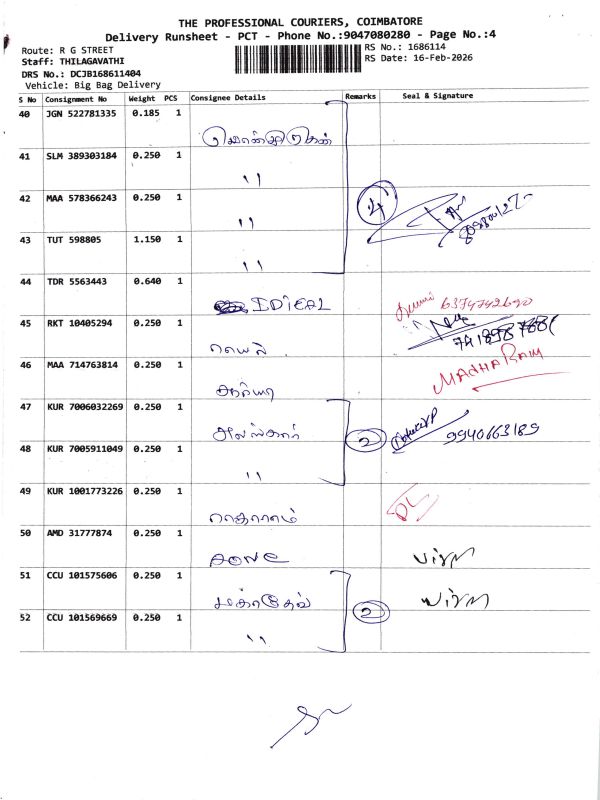 THE PROFESSIONAL COURIERS, COIMBATORE
Delivery Runsheet - PCT - Phone No.:9047080280 - Page No.:4
Route: R G STREET
RS No.: 1686114
Staff: THILAGAVATHI
RS Date: 16-Feb-2026
DRS No.: DCJB168611404
Vehicle: Big Bag Delivery
S No Consignment No Weight PCS Consignee Details Remarks Seal & Signature
40 JGN 522781335 0.185 1
41 SLM 389303184 0.250 1
''
42 MAA 578366243 0.250 1
'' 4
43 TUT 598805 1.150 1
''
44 TDR 5563443 0.640 1
IDIEAL 6374742690
45 RKT 10405294 0.250 1
46 MAA 714763814 0.250 1
MADHA RAM
47 KUR 7006032269 0.250 1
2 9940663189
48 KUR 7005911049 0.250 1
''
49 KUR 1001773226 0.250 1
DL
50 AMD 31777874 0.250 1
AONE
51 CCU 101575606 0.250 1
மகாதேவ் 2
52 CCU 101569669 0.250 1
''